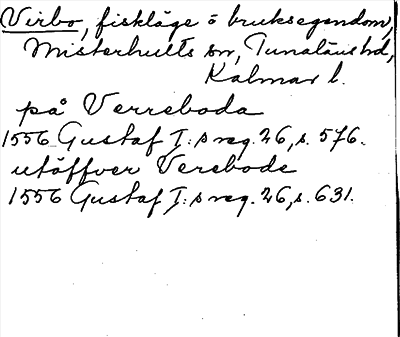 Virbo, fiskläge o bruksegendom,
Misterhults sn, Tunaläns hd,
Kalmar l.
på Verreboda
1556 Gustaf I:s reg. 26, s. 576.
utöffver Verebode
1556 Gustaf I:s reg. 26, s. 631.